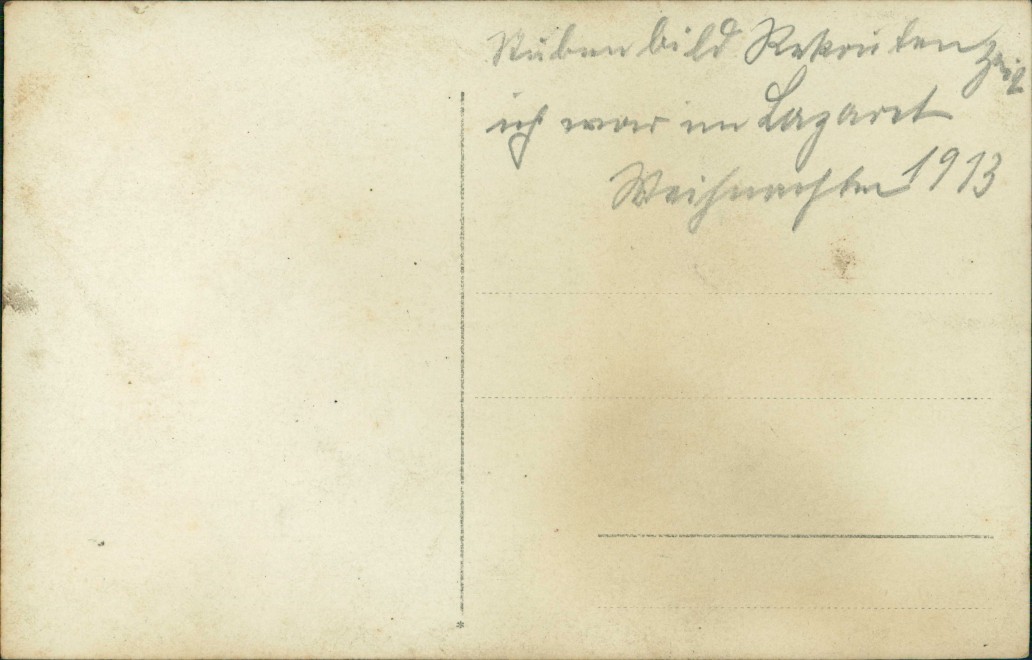 Stubenbild Rekrutenzeit
ich war im Lazaret
Weihnachten 1913